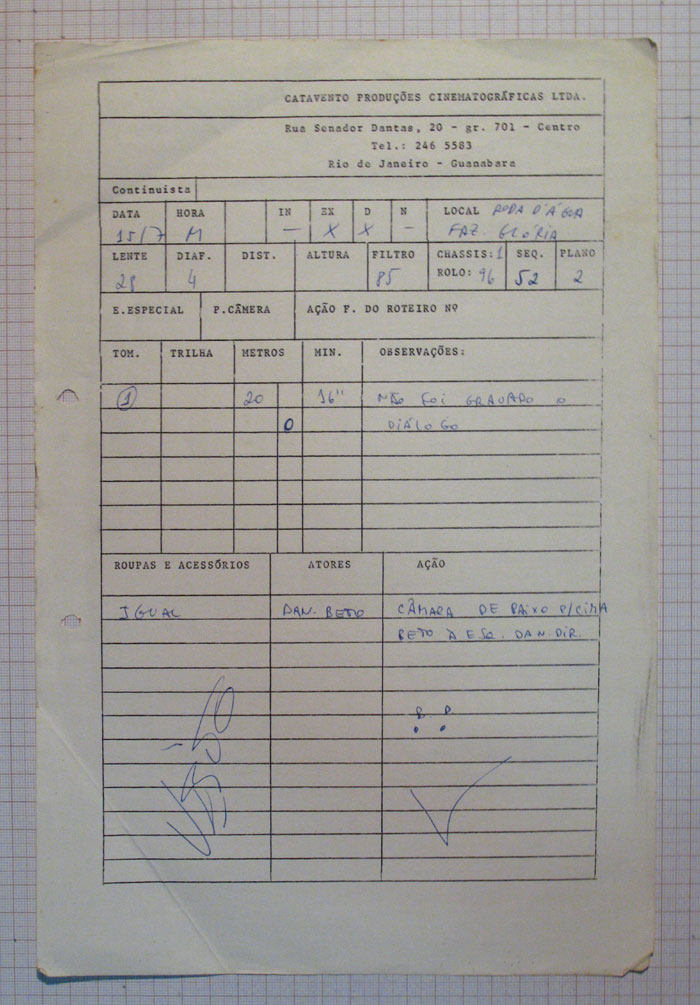 CATAVENTO PRODUÇÕES CINEMATOGRÁFICAS LTDA.
Rua Senador Dantas, 20 - gr. 701 - Centro
Tel.: 246 5583
Rio de Janeiro - Guanabara
Continuista
DATA HORA IN EX D N LOCAL RODA D'ÁGUA
15/7 M — X X - FAZ. GLÓRIA
LENTE DIAF. DIST. ALTURA FILTRO CHASSIS: 1 SEQ. PLANO
28 4 85 ROLO: 96 52 2
E.ESPECIAL P.CÂMERA AÇÃO F. DO ROTEIRO Nº
TOM. TRILHA METROS MIN. OBSERVAÇÕES:
1 20 16" NÃO FOI GRAVADO O
0 DIÁLOGO
ROUPAS E ACESSÓRIOS ATORES AÇÃO
IGUAL DAN. BETO CÂMARA DE BAIXO P/CIMA
BETO À ESQ. DAN. DIR.
B D